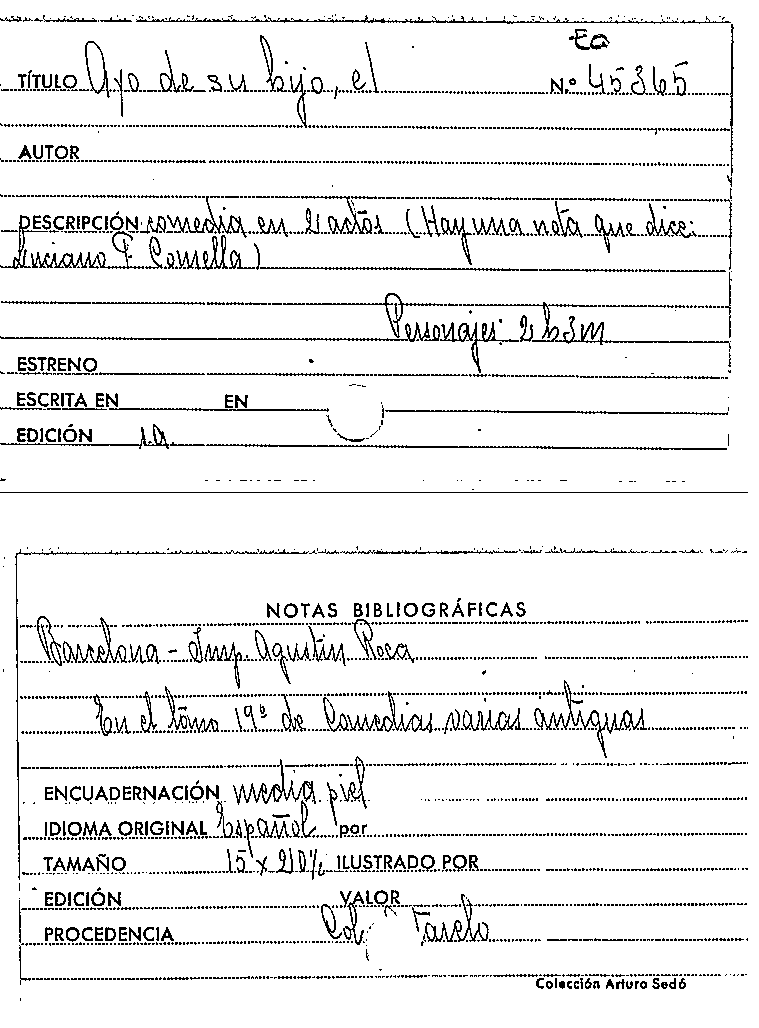 Ea
TÍTULO Ayo de su hijo, el N.º 45365
AUTOR
DESCRIPCIÓN comedia en 2 actos (Hay una nota que dice:
Luciano F. Comella)
Personajes: 2 h 3 m
ESTRENO
ESCRITA EN EN
EDICIÓN s.a.
NOTAS BIBLIOGRÁFICAS
Barcelona - Imp. Agustín Roca
En el tomo 19º de Comedias varias antiguas
ENCUADERNACIÓN media piel
IDIOMA ORIGINAL Español por
TAMAÑO 15 x 210% ILUSTRADO POR
EDICIÓN VALOR
PROCEDENCIA Col.
Colección Arturo Sedó